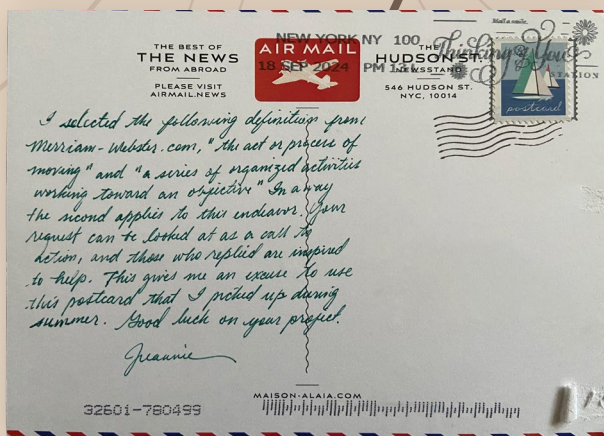 THE BEST OF
THE NEWS
FROM ABROAD
PLEASE VISIT
AIRMAIL.NEWS
AIR MAIL
NEW YORK NY 100
18 SEP 2024 PM 13 L
THE
HUDSON ST.
NEWSSTAND
546 HUDSON ST.
NYC, 10014
Mail a smile.
Thinking of You
STATION
postcard
I selected the following definitions from
Merriam-Webster.com, "the act or process of
moving" and "a series of organized activities
working toward an objective" In a way
the second applies to this endeavor. Your
request can be looked at as a call to
action, and those who replied are inspired
to help. This gives me an excuse to use
this postcard that I picked up during
summer. Good luck on your project.
Jeannie
MAISON-ALAIA.COM
32601-780499